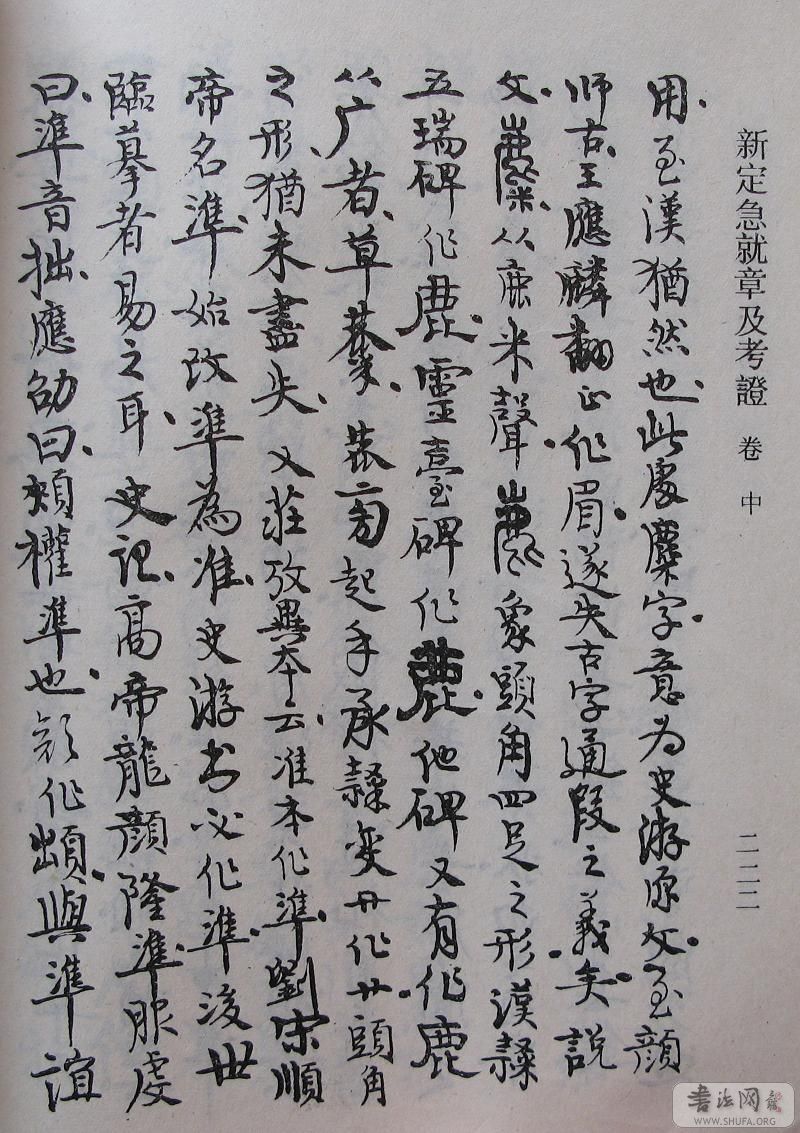 新定急就章及考證 卷中 二二二
用至漢猶然也此處麋字意為史游原文至顏
師古王應麟翻正作眉遂失古字通叚之義矣說
文麋从鹿米聲鹿象頭角四足之形漢隸
五瑞碑作鹿靈臺碑作鹿他碑又有作鹿
从广者草蔡起手承隸變廾作廿頭角
之形猶未盡失又莊攷異本云准本作準劉宋順
帝名準始改準為准史游書必作準後世
臨摹者易之耳史記高帝龍顏隆準服虔
曰準音拙應劭曰頰權準也作頗與準誼
書法网
WWW.SHUFA.ORG